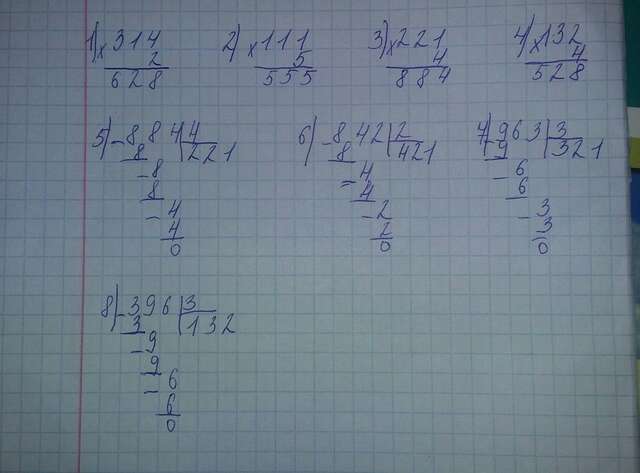 1) × 314 2) × 111 3) × 221 4) × 132
2 5 4 4
628 555 884 528
5) - 884 | 4 6) - 842 | 2 7) - 963 | 3
8 221 8 421 9 321
- 8 - 4 - 6
8 4 6
- 4 - 2 - 3
4 2 3
0 0 0
8) - 396 | 3
3 132
- 9
9
- 6
6
0